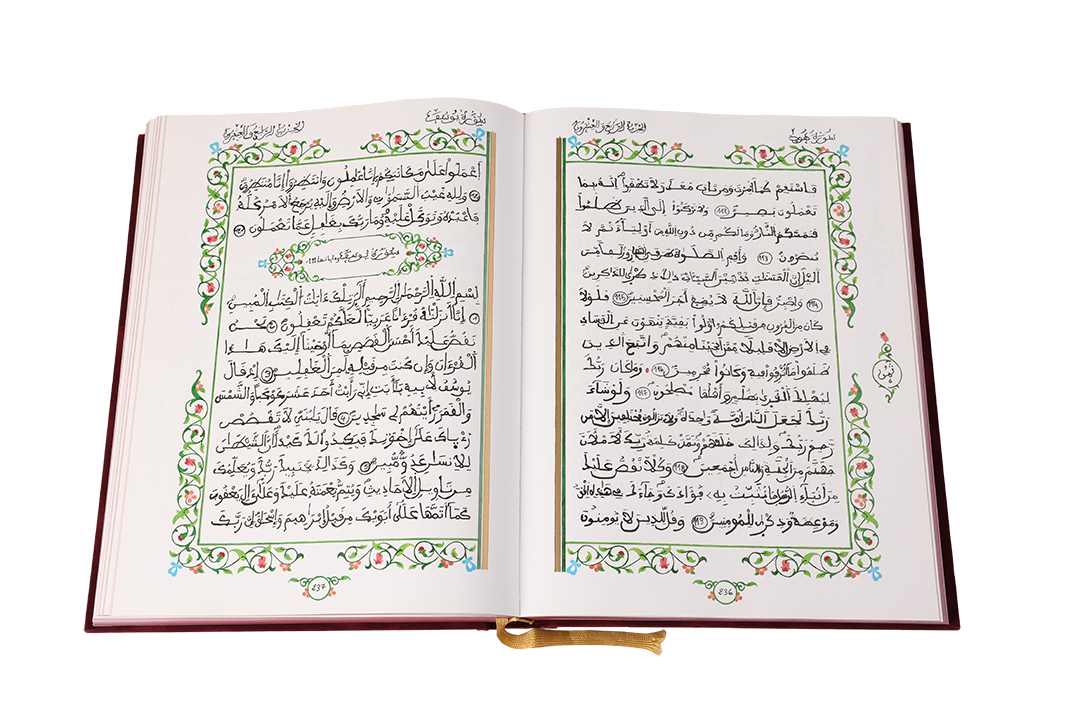 سورة هود
الحزب الرابع والعشرون
فاستقم كما أمرت ومن تاب معك ولا تطغوا إنه بما
تعملون بصير 112 ولا تركنوا إلى الذين ظلموا
فتمسكم النار وما لكم من دون الله من أولياء ثم لا
تنصرون 113 وأقم الصلوة طرفي النهار وزلفا من
اليل إن الحسنات يذهبن السيئات ذلك ذكرى للذاكرين
114 واصبر فإن الله لا يضيع أجر المحسنين 115 فلولا
كان من القرون من قبلكم أولوا بقية ينهون عن الفساد
في الأرض إلا قليلا ممن أنجينا منهم واتبع الذين
ظلموا ما أترفوا فيه وكانوا مجرمين 116 وما كان ربك
ليهلك القرى بظلم وأهلها مصلحون 117 ولو شاء
ربك لجعل الناس أمة واحدة ولا يزالون مختلفين إلا من
رحم ربك ولذلك خلقهم وتمت كلمة ربك لأملأن
جهنم من الجنة والناس أجمعين 118 وكلا نقص عليك
من أنباء الرسل ما نثبت به فؤادك وجاءك في هذه الحق
وموعظة وذكرى للمومنين 119 وقل للذين لا يومنون
ثمن
236
سورة يوسف
الحزب الرابع والعشرون
اعملوا على مكانتكم إنا عاملون وانتظروا إنا منتظرون
ولله غيب السموات والأرض وإليه يرجع الأمر كله
فاعبده وتوكل عليه وما ربك بغافل عما تعملون
سورة يوسف وآياتها 111
بسم الله الرحمن الرحيم الر تلك ءايات الكتاب المبين
إنا أنزلناه قرءانا عربيا لعلكم تعقلون نحن
نقص عليك أحسن القصص بما أوحينا إليك هذا
القرءان وإن كنت من قبله لمن الغافلين إذ قال
يوسف لأبيه يا أبت إني رأيت أحد عشر كوكبا والشمس
والقمر رأيتهم لي ساجدين قال يا بني لا تقصص
رءياك على إخوتك فيكيدوا لك كيدا إن الشيطان
للإنسان عدو مبين وكذلك يجتبيك ربك ويعلمك
من تاويل الأحاديث ويتم نعمته عليك وعلى ءال يعقوب
كما أتمها على أبويك من قبل إبراهيم وإسحاق إن ربك
237